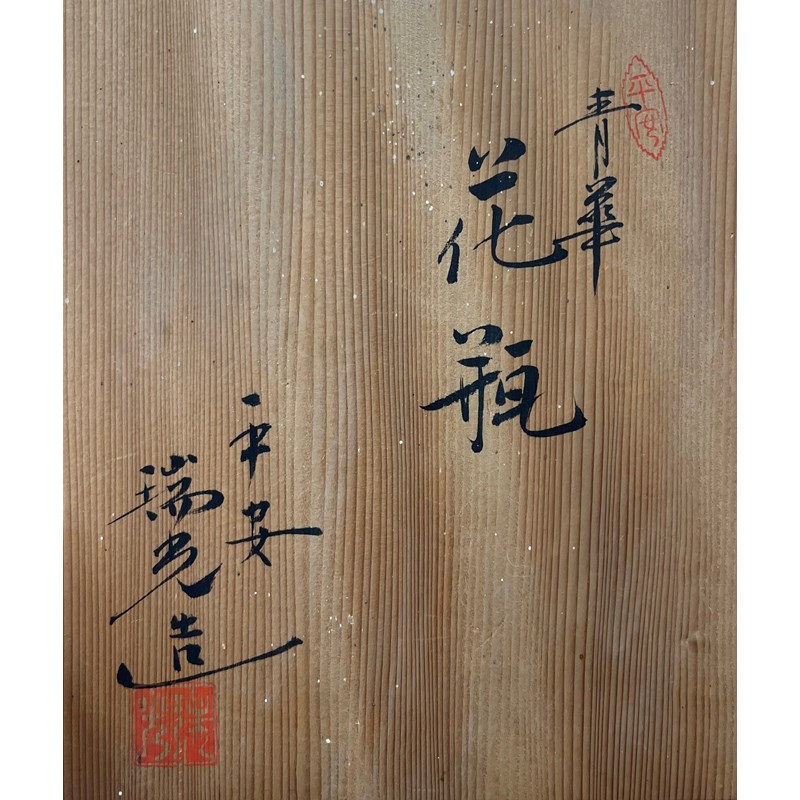 青華
花瓶
平安
瑞光造
平安